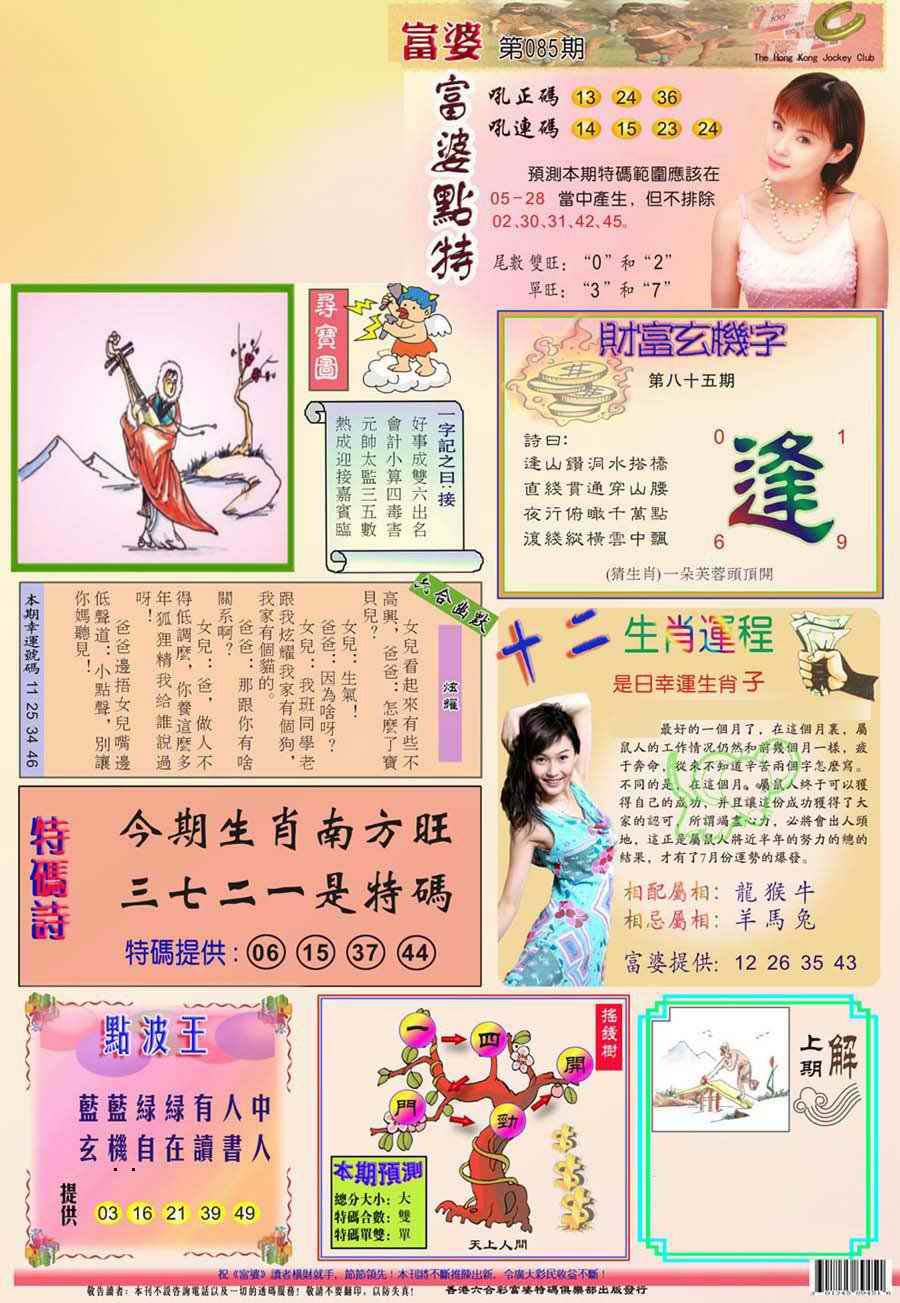 富婆 第085期
The Hong Kong Jockey Club
富婆點特
吼正碼 13 24 36
吼連碼 14 15 23 24
預測本期特碼範圍應該在
05-28 當中產生，但不排除
02、30、31、42、45。
尾數雙旺：“0”和“2”
單旺：“3”和“7”
尋寶圖
一字記之曰：接
好事成雙六出名
會計小算四毒害
元帥太監三五數
熱成迎接嘉賓臨
財富玄機字
第八十五期
詩曰：
逢山鑽洞水搭橋
直綫貫通穿山腰
夜行俯瞰千萬點
復綫縱橫雲中飄
0 1
逢
6 9
(猜生肖)一朵芙蓉頭頂開
六合幽默
炫耀
女兒看起來有些不
高興，爸爸：怎麼了寶
貝兒？
女兒：生氣！
爸爸：因為啥呀？
女兒：我班同學老
跟我炫耀我家有個狗，
我家有個貓的。
爸爸：那跟你有啥
關系啊？
女兒：爸，做人不
得低調麼，你養這麼多
年狐狸精我給誰說過
呀！
爸爸邊捂女兒嘴邊
低聲道：小點聲，別讓
你媽聽見！
本期幸運號碼 11 25 34 46
十二生肖運程
是日幸運生肖 子
最好的一個月了，在這個月裏，屬
鼠人的工作情況仍然和前幾個月一樣，疲
于奔命，從來不知道辛苦兩個字怎麼寫。
不同的是，在這個月。屬鼠人終于可以獲
得自己的成功，并且讓這份成功獲得了大
家的認可，所謂竭盡心力，必將會出人頭
地，這正是屬鼠人將近半年的努力的總的
結果，才有了7月份運勢的爆發。
相配屬相：龍猴牛
相忌屬相：羊馬兔
富婆提供：12 26 35 43
特碼詩
今期生肖南方旺
三七二一是特碼
特碼提供：06 15 37 44
點波王
藍藍緑緑有人中
玄機自在讀書人
提供 03 16 21 39 49
搖錢樹
一 四 開
門 勁
本期預測
總分大小：大
特碼合數：雙
特碼單雙：單
天上人間
上期解
祝《富婆》讀者橫財就手，節節領先！本刊將不斷推陳出新，令廣大彩民收益不斷！
敬告讀者：本刊不設咨詢電話以及一切的透碼服務！敬請不要翻印，以防失真！ 香港六合彩富婆特碼俱樂部出版發行